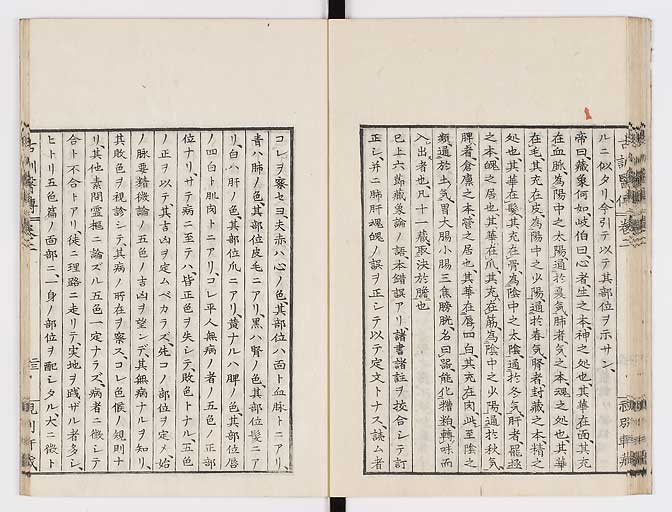 ルニ似タリ今引テ以テ其部位ヲ示サン
帝曰藏象何如岐伯曰心者生之本神之処也其華在面其充
在血脉為陽中之太陽通於夏気肺者気之本魂之処也其華
在毛其充在皮為陽中之少陽通於春気腎者封藏之本精之
処也其華在髪其充在骨為陰中之太陰通於冬気肝者罷極
之本魄之居也其華在爪其充在筋為陰中之少陽通於秋気
脾者倉廩之本營之居也其華在唇四白其充在肉此至陰之
類通於土気胃大腸小腸三焦膀胱名曰器能化糟粕轉味而
入出者也凡十一藏取決於膽也
已上六節藏象論ノ語本錯誤アリ諸書諸註ヲ按合シテ訂
正シ并ニ肺肝魂魄ノ誤ヲ正シテ以テ定文トナス讀ム者
コレヲ察セヨ夫赤ハ心ノ色其部位ハ面ト血脉トニアリ
青ハ肺ノ色其部位皮毛ニアリ黒ハ腎ノ色其部位髪ニア
リ白ハ肝ノ色其部位爪ニアリ黄ナルハ脾ノ色其部位唇
ノ四白ト肌肉トニアリコレ平人無病ノ者ノ五色ノ正部
位ナリサテ病ニ至テハ皆正色ヲ失シテ敗色トナル五色
ノ正ヲ以テ其吉凶ヲ定ムベカラズ先コノ部位ヲ定メ始
ノ脉要精微論ノ五色ノ吉凶ヲ望シテ其無病ナルヲ知リ
其敗色ヲ視診シテ其病ノ所在ヲ察スコレ色候ノ規則ナ
リ其他素問靈樞ニ論ズル五色一定ナラズ病者ニ徴シテ
合ト不合トアリ徒ニ理路ニ走リテ実地ヲ踐ザル者多シ
ヒトリ五色篇ノ面部ニ一身ノ部位ヲ配シタル大ニ徴ト